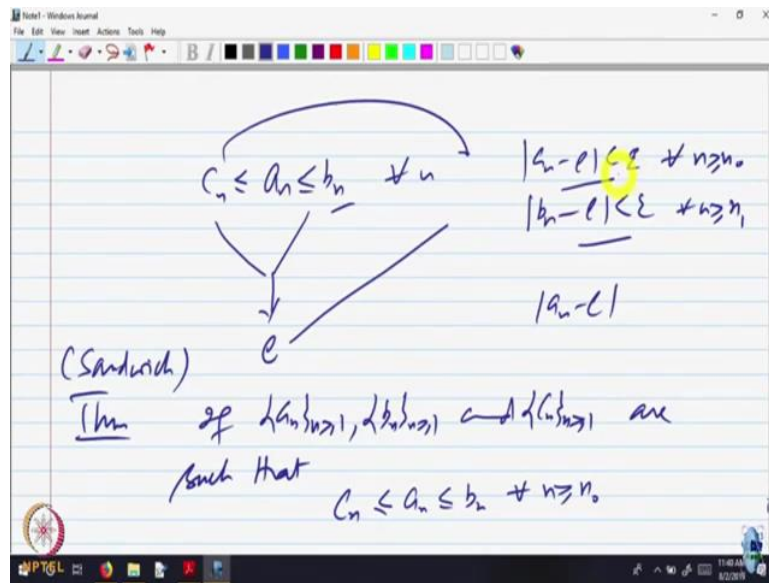 Note1 - Windows Journal
File Edit View Insert Actions Tools Help
B I
Cₙ ≤ aₙ ≤ bₙ ∀ n
|cₙ - l| < ε ∀ n ≥ n₀
|bₙ - l| < ε ∀ n ≥ n₁
|aₙ - l|
l
(Sandwich)
Thm If {aₙ}ₙ≥₁, {bₙ}ₙ≥₁ and {Cₙ}ₙ≥₁ are
such that
Cₙ ≤ aₙ ≤ bₙ ∀ n ≥ n₀
NPTEL
11:40 AM
8/2/2019